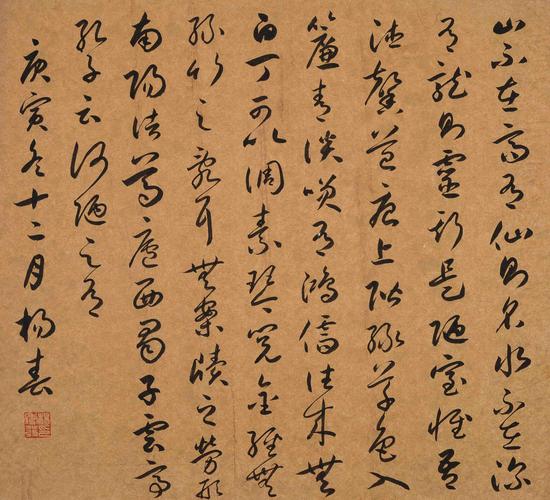 山不在高有仙則名水不在深
有龍則靈斯是陋室惟吾
德馨苔痕上階綠草色入
簾青談笑有鴻儒往來無
白丁可以調素琴閱金經無
絲竹之亂耳無案牘之勞形
南陽諸葛廬西蜀子雲亭
孔子云何陋之有
庚寅冬十二月楊春